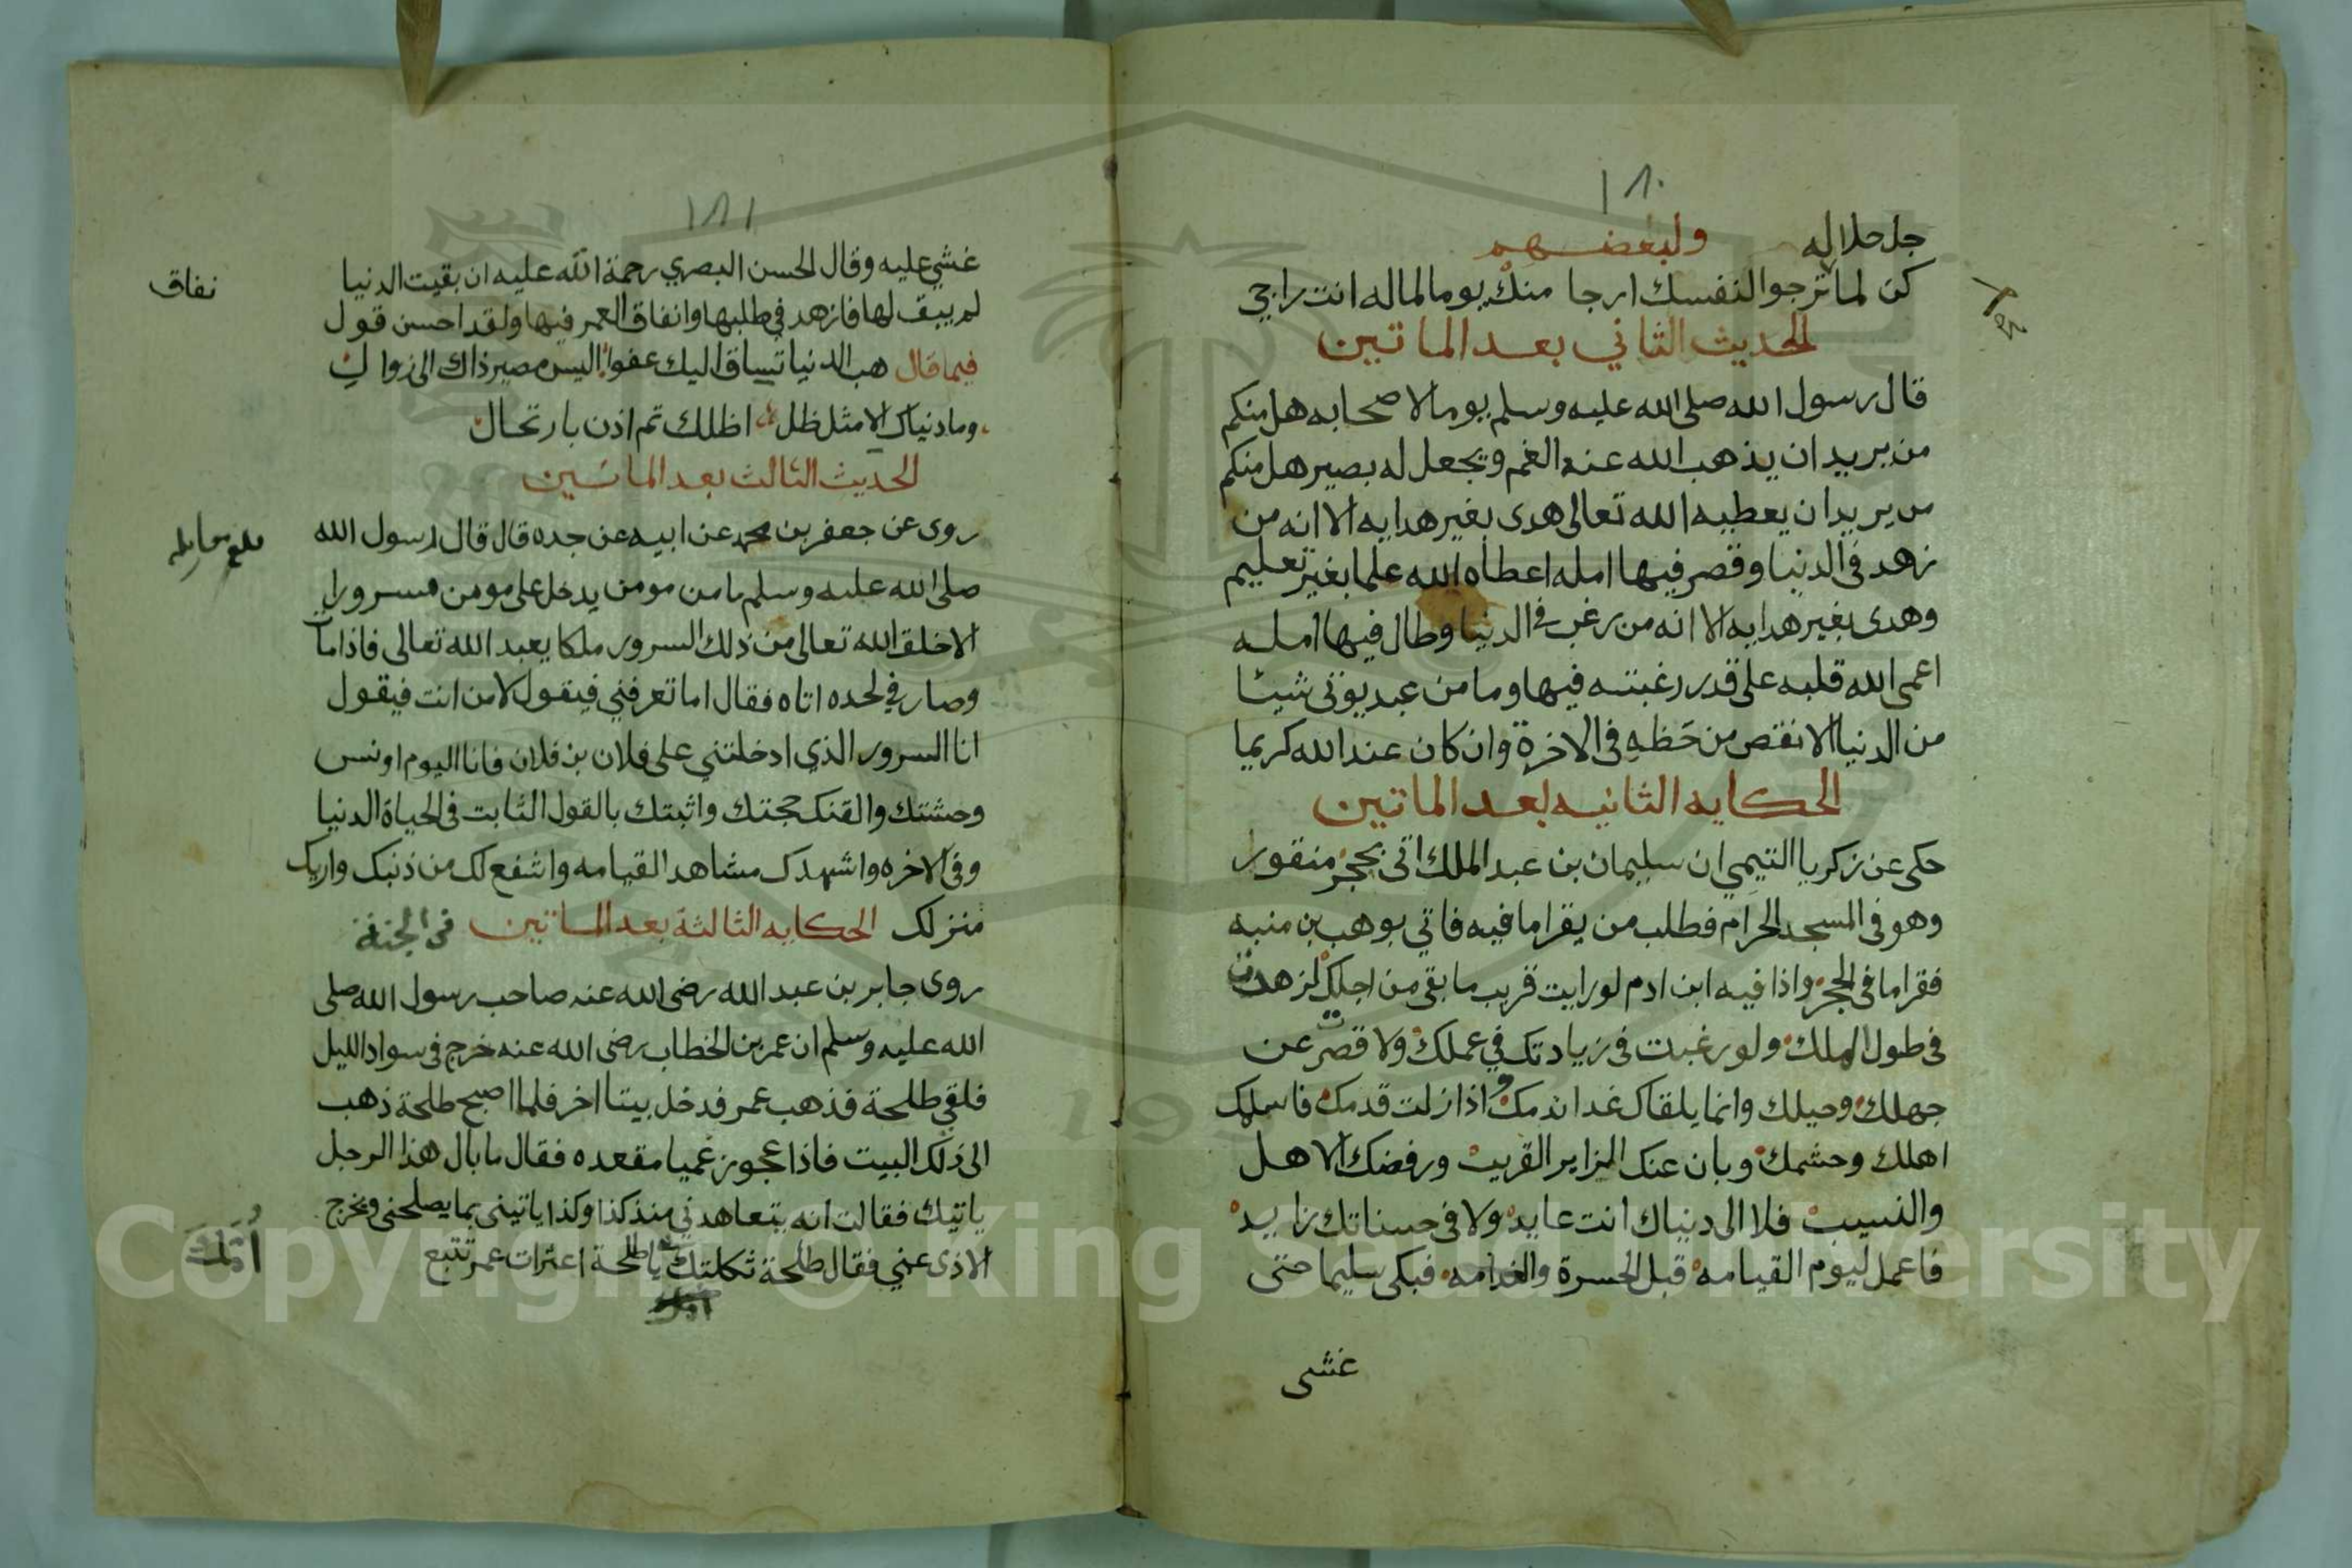 ١٨٠
جل جلاله ولبعضهم
كن لما لا ترجوا لنفسك ارجا منك يوما لما له انت راجي
الحديث الثاني بعد الماتين
قال رسول الله صلى الله عليه وسلم يوما لاصحابه هل منكم
من يريد ان يذهب الله عنه الغم ويجعل له بصير هل منكم
من يريد ان يعطيه الله تعالى هدى بغير هدايه الا انه من
زهد فى الدنيا وقصر فيها امله اعطاه الله علما بغير تعليم
وهدى بغير هدايه الا انه من رغب فى الدنيا وطال فيها امله
اعمى الله قلبه على قدر رغبته فيها وما من عبد يوتى شيئا
من الدنيا الا نقص من حَظهِ فى الاخرة وان كان عند الله كريما
الحكايه الثانيه بعد الماتين
حكى عن زكريا التيمي ان سليمان بن عبد الملك اتى بحجر منقور
وهو فى المسجد الحرام فطلب من يقرا ما فيه فاتي بوهب بن منبه
فقرا ما فى الحجر واذا فيه ابن ادم لو رايت قريب ما بقى من اجلك لزهدت
فى طول املك ولو رغبت فى زيادتك في عملك ولاقصرت عن
جهلك وحيلك وانما يلقاك غدا ندمك واذا زلت قدمك فاسلمك
اهلك وحشمك وبان عنك المزاير القريب ورفضك الاهل
والنسيب فلا الى دنياك انت عايد ولا فى حسناتك زايد
فاعمل ليوم القيامه قبل الحسرة والندامه فبكى سليما حتى
غشى
١٨١
غشي عليه وقال الحسن البصري رحمة الله عليه ان بقيت الدنيا
لم يبق لها فازهد في طلبها وانفاق العمر فيها ولقد احسن قول
نفاق
فيما قال هب الدنيا تساق اليك عفوا اليس مصير ذاك الى زوال
وما دنياك الا مثل ظل اظلك ثم اذن بارتحال
الحديث الثالث بعد الماتين
روى عن جعفر بن محمد عن ابيه عن جده قال قال رسول الله
بلغ مقابله
صلى الله عليه وسلم ما من مومن يدخل على مومن مسرورا
الا خلق الله تعالى من ذلك السرور ملكا يعبد الله تعالى فاذا مات
وصار في لحده اتاه فقال اما تعرفني فيقول لا من انت فيقول
انا السرور الذي ادخلتني على فلان بن فلان فانا اليوم اونس
وحشتك والقنك حجتك واثبتك بالقول الثابت فى الحياة الدنيا
وفى الاخره واشهدك مشاهد القيامه واشفع لك من ذنبك واريك
منزلك الحكايه الثالثة بعد الماتين فى الجنة
روى جابر بن عبد الله رضى الله عنه صاحب رسول الله صلى
الله عليه وسلم ان عمر بن الخطاب رضى الله عنه خرج فى سواد الليل
فلقي طلحة فذهب عمر فدخل بيتا اخر فلما اصبح طلحة ذهب
الى ذلك البيت فاذا عجوز عميا مقعده فقال ما بال هذا الرجل
ياتيك فقالت انه يتعاهدني منذ كذا وكذا ياتينى بما يصلحنى ويخرج
الاذى عني فقال طلحة ثكلتك يا طلحة اعثرات عمر تتبع
أُمُّكَ
Copyright © King Saud University
1957